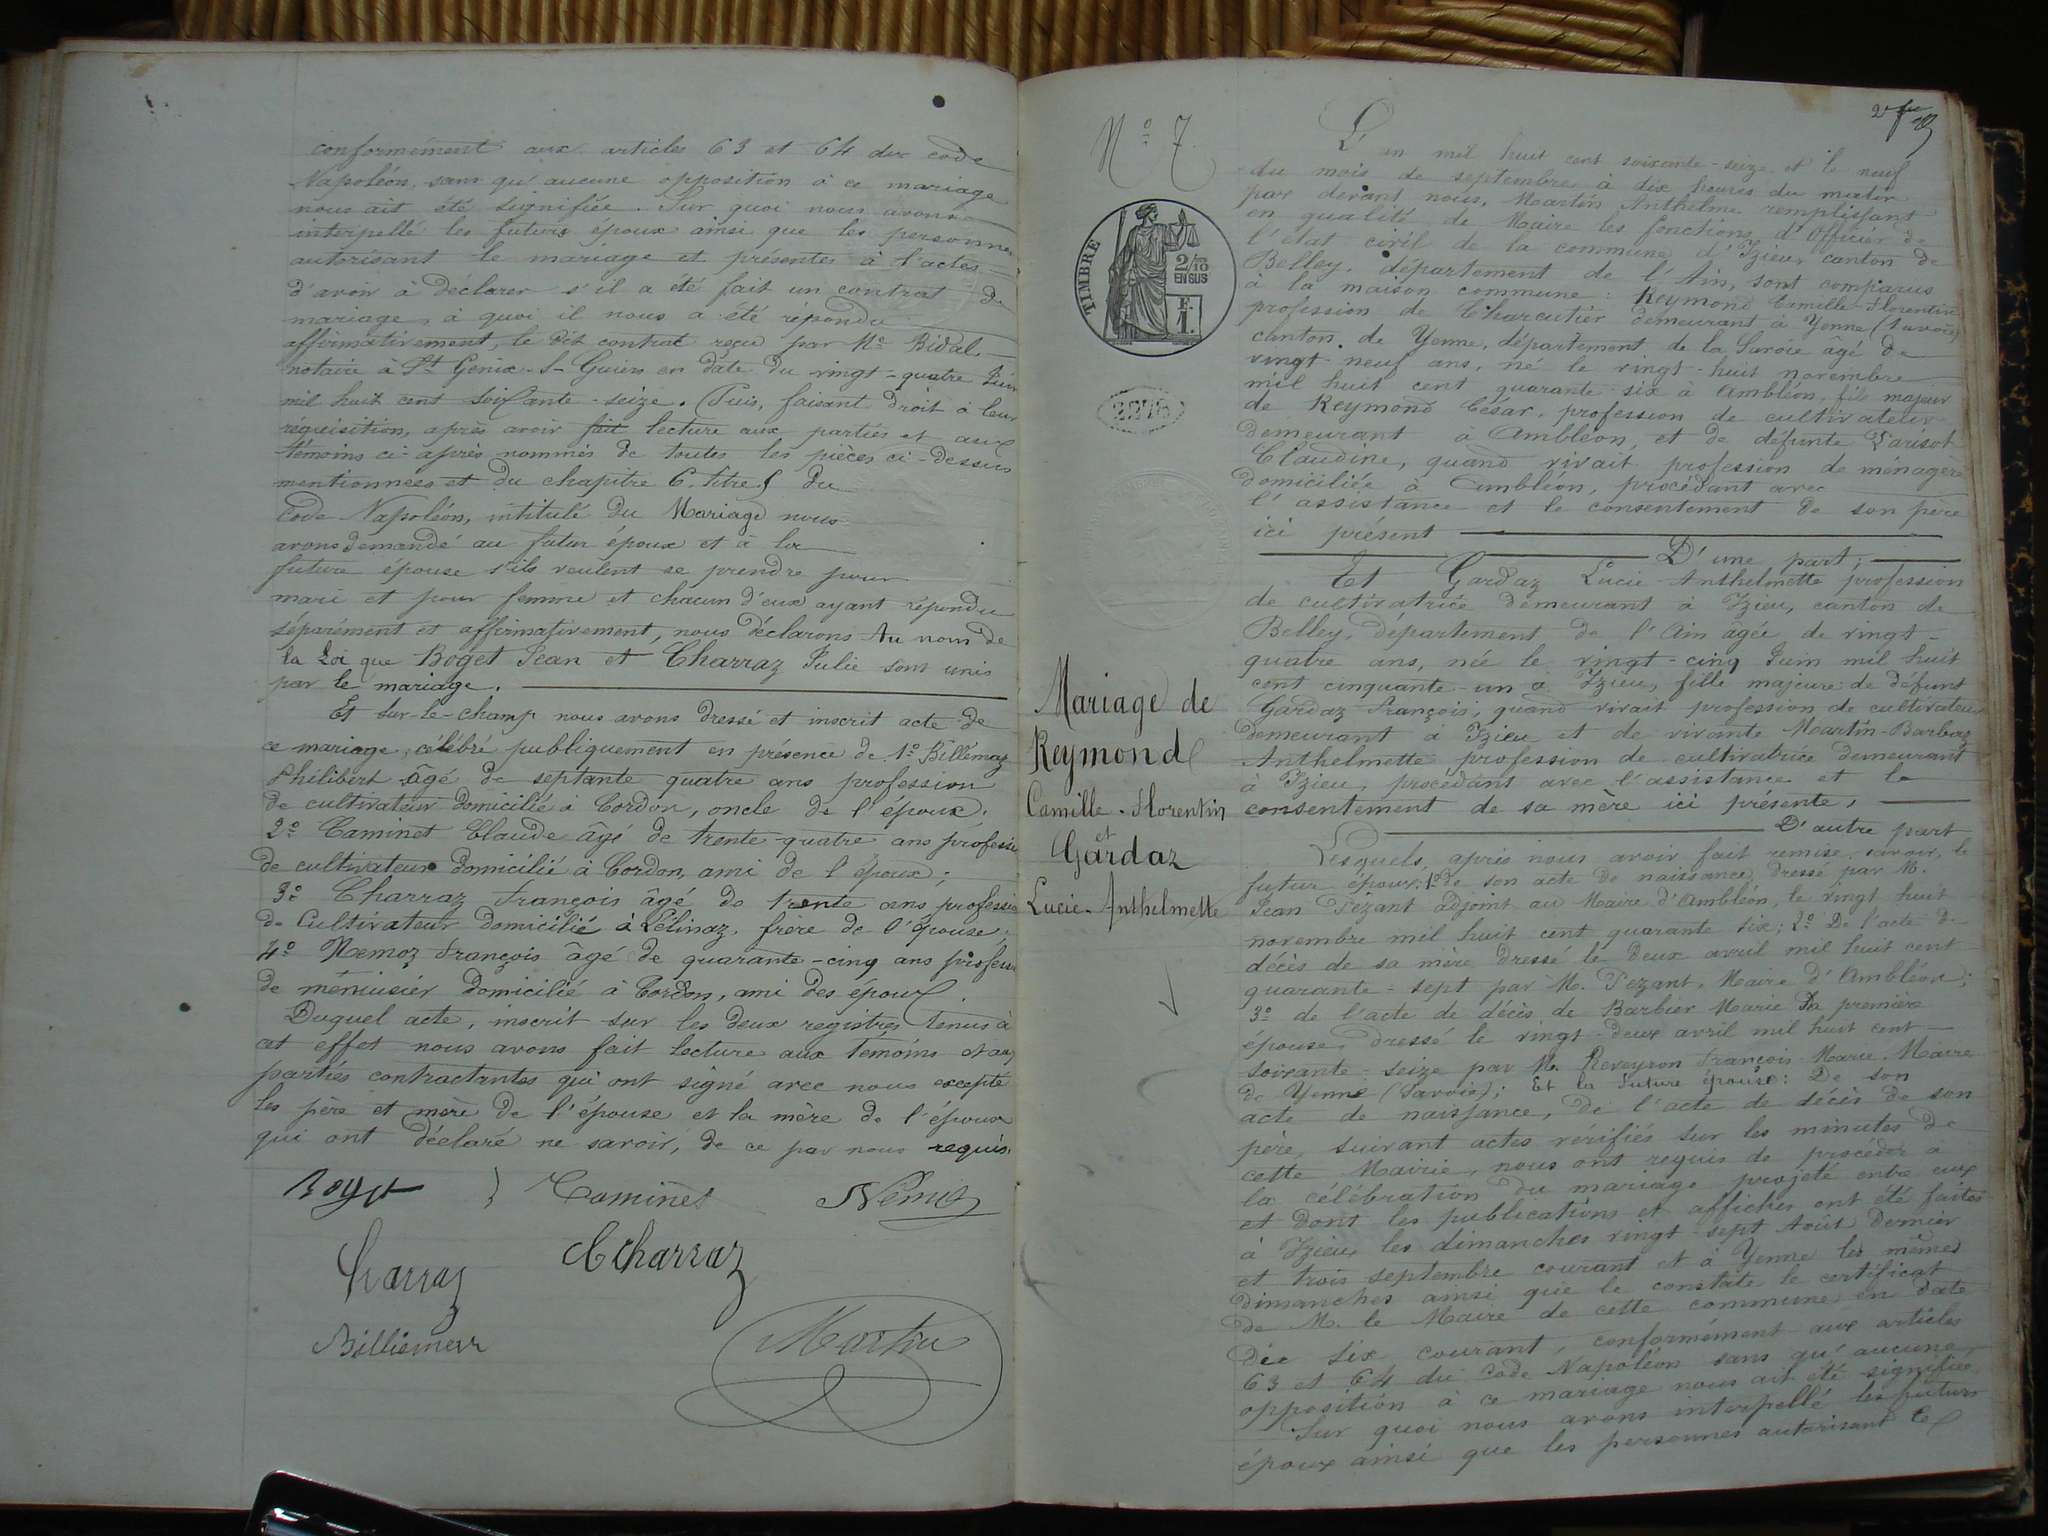 conformément aux articles 63 et 64 du code
Napoléon, sans qu'aucune opposition à ce mariage
nous ait été signifiée. Sur quoi nous avons
interpellé les futurs époux ainsi que les personnes
autorisant le mariage et présentes à l'actes
d'avoir à déclarer s'il a été fait un contrat de
mariage, à quoi il nous a été répondu
affirmativement, le dit contrat reçu par Me Bidal,
notaire à St Genix-S-Guiers en date du vingt-quatre
mil huit cent soixante-seize. Puis, faisant droit à leur
réquisition, après avoir fait lecture aux parties et aux
témoins ci-après nommés de toutes les pièces ci-dessus
mentionnées et du chapitre 6. titre 5 du
code Napoléon, intitulé du Mariage nous
avons demandé au futur époux et à la
future épouse s'ils veulent se prendre pour
mari et pour femme et chacun d'eux ayant répondu
séparément et affirmativement, nous déclarons Au nom de
la Loi que Boget Jean et Charraz Julie sont unis
par le mariage.
Et sur-le-champ nous avons dressé et inscrit acte de
ce mariage, célébré publiquement en présence de 1º Billémaz
Philibert âgé de septante quatre ans profession
de cultivateur domicilié à Cordon, oncle de l'époux;
2º Caminet Claude âgé de trente-quatre ans professi
de cultivateur domicilié à Cordon, ami de l'époux;
3º Charraz François âgé de trente ans professi
de Cultivateur domicilié à Lélinaz, frère de l'épouse;
4º Nemoz François âgé de quarante-cinq ans profess
de menuisier domicilié à Cordon, ami des époux.
Duquel acte, inscrit sur les deux registres tenus à
cet effet nous avons fait lecture aux témoins et aux
parties contractantes qui ont signé avec nous excepté
les père et mère de l'épouse et la mère de l'époux
qui ont déclaré ne savoir, de ce par nous requis.
Boget Caminet Némoz
Charraz C Charraz
Billiemaz Martin
Nº 7.
TIMBRE
2/10
EN SUS
F.
1.
Mariage de
Reymond
Camille-Florentin
et
Gardaz
Lucie-Anthelmette
L'an mil huit cent soixante-seize et le neuf
du mois de septembre à dix heures du matin
par devant nous, Martin Anthelme remplissant
en qualité de Maire les fonctions d'Officier de
l'état civil de la commune d'Izieu, canton de
Belley, département de l'Ain, sont comparus
à la maison commune: Reymond Camille-Florentin
profession de Charcutier demeurant à Yenne (Savoie)
canton de Yenne, département de la Savoie âgé de
vingt-neuf ans, né le vingt-huit novembre
mil huit cent quarante-six à Ambléon, fils majeur
de Reymond César, profession de cultivateur
demeurant à Ambléon, et de défunte Parisot
Claudine, quand vivait profession de ménagère
domiciliée à Ambléon, procédant avec
l'assistance et le consentement de son père
ici présent
D'une part;
Et Gardaz Lucie-Anthelmette profession
de cultivatrice demeurant à Izieu, canton de
Belley, département de l'Ain âgée de vingt-
quatre ans, née le vingt-cinq Juin mil huit
cent cinquante-un à Izieu, fille majeure de défunt
Gardaz François, quand vivait profession de cultivateur
demeurant à Izieu et de vivante Martin-Barbaz
Anthelmette profession de cultivatrice demeurant
à Izieu, procédant avec l'assistance et le
consentement de sa mère ici présente,
D'autre part
Lesquels, après nous avoir fait remise, savoir, le
futur époux: 1º de son acte de naissance, dressé par M.
Jean Pezant adjoint au Maire d'Ambléon, le vingt huit
novembre mil huit cent quarante six; 2º De l'acte de
décès de sa mère dressé le deux avril mil huit cent
quarante-sept par M. Pezant, Maire d'Ambléon;
3º de l'acte de décès de Barbier Marie sa première
épouse, dressé le vingt-deux avril mil huit cent
soixante-seize par M. Reveyron François-Marie, Maire
de Yenne (Savoie); Et la future épouse: De son
acte de naissance, de l'acte de décès de son
père, suivant actes vérifiés sur les minutes de
cette Mairie, nous ont requis de procéder à
la célébration du mariage projeté entre eux
et dont les publications et affiches ont été faites
à Izieu, les dimanches vingt-sept Août dernier
et trois septembre courant et à Yenne les mêmes
dimanches ainsi que le constate le certificat
de M. le Maire de cette commune en date
du six courant, conformément aux articles
63 et 64 du Code Napoléon sans qu'aucune
opposition à ce mariage nous ait été signifiée
Sur quoi nous avons interpellé les futurs
époux ainsi que les personnes autorisant le